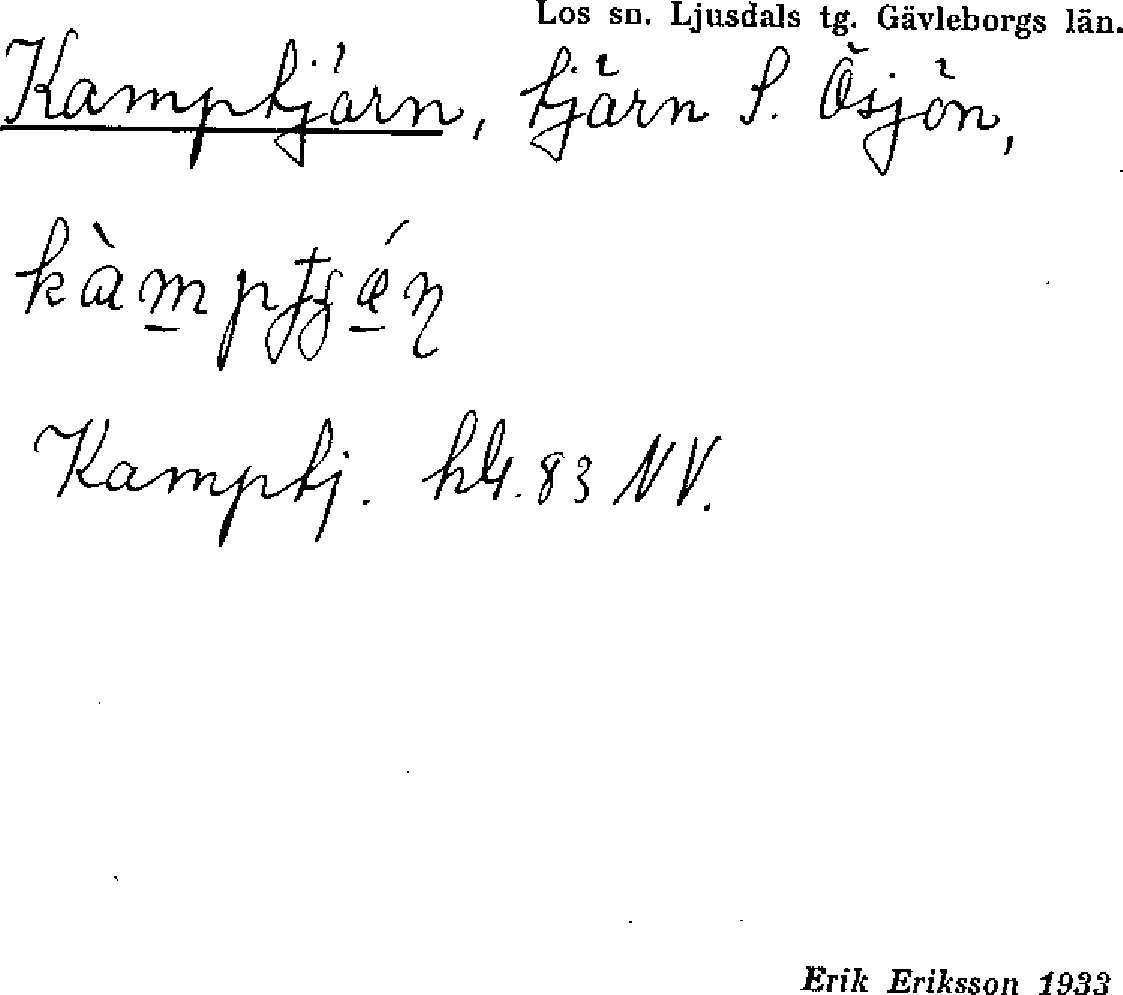 Los sn. Ljusdals tg. Gävleborgs län.
Kamptjärn, tjärn S. Ösjön,
Kamptj. hk. 83 NV.
Erik Eriksson 1933